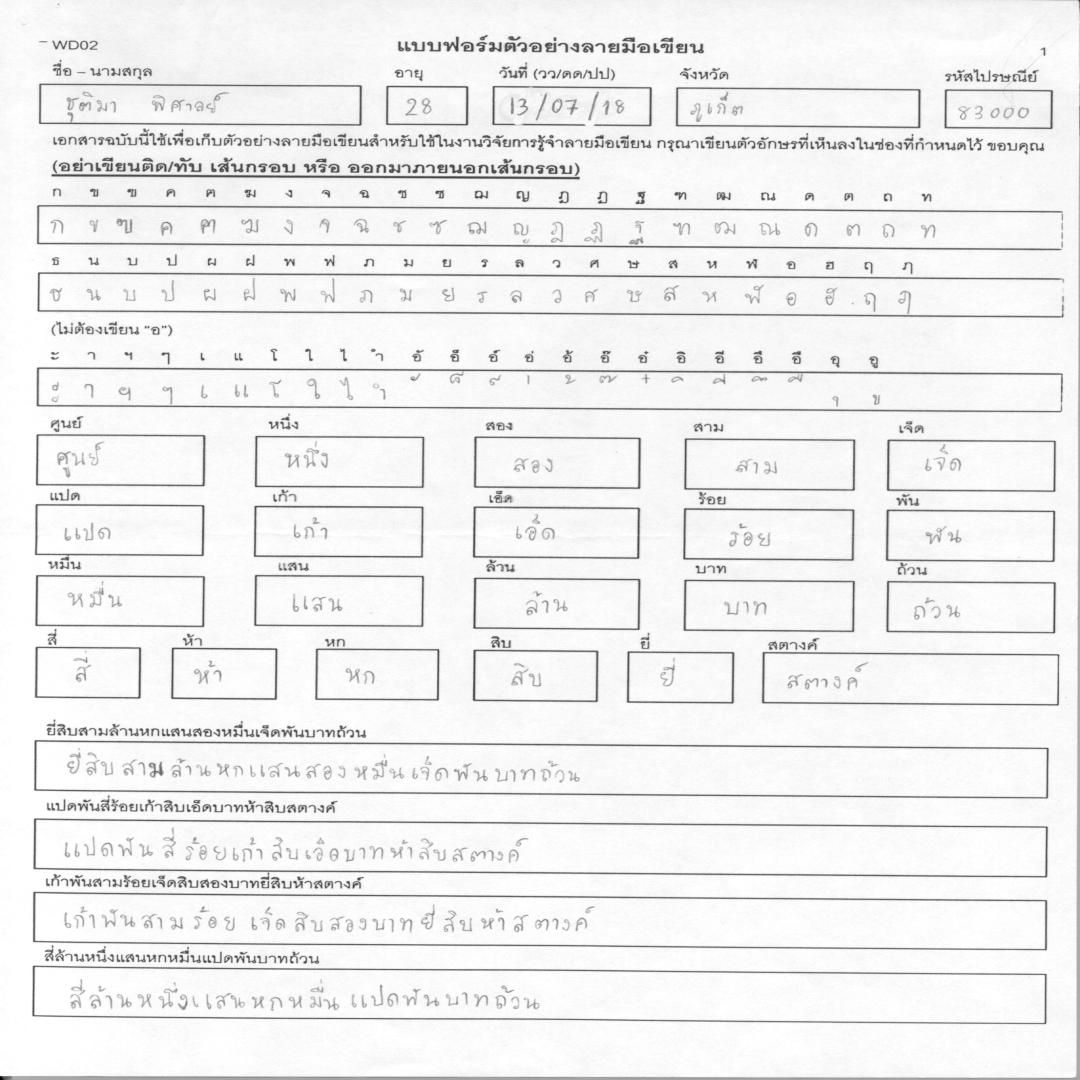 WD02 แบบฟอร์มตัวอย่างลายมือเขียน 1
ชื่อ – นามสกุล อายุ วันที่ (วว/ดด/ปป) จังหวัด รหัสไปรษณีย์
ชุติมา พิศาลย์ 28 13/07/18 ภูเก็ต 83000
เอกสารฉบับนี้ใช้เพื่อเก็บตัวอย่างลายมือเขียนสำหรับใช้ในงานวิจัยการรู้จำลายมือเขียน กรุณาเขียนตัวอักษรที่เห็นลงในช่องที่กำหนดไว้ ขอบคุณ
(อย่าเขียนติด/ทับ เส้นกรอบ หรือ ออกมาภายนอกเส้นกรอบ)
ก ข ฃ ค ฅ ฆ ง จ ฉ ช ซ ฌ ญ ฎ ฏ ฐ ฑ ฒ ณ ด ต ถ ท
ก ข ฃ ค ฅ ฆ ง จ ฉ ช ซ ฌ ญ ฎ ฏ ฐ ฑ ฒ ณ ด ต ถ ท
ธ น บ ป ผ ฝ พ ฟ ภ ม ย ร ล ว ศ ษ ส ห ฬ อ ฮ ฤ ฦ
ธ น บ ป ผ ฝ พ ฟ ภ ม ย ร ล ว ศ ษ ส ห ฬ อ ฮ ฤ ฦ
(ไม่ต้องเขียน “อ”)
ะ า ฯ ๆ เ แ โ ใ ไ ำ อั อ็ อ์ อ่ อ้ อ๊ อ๋ อิ อี อึ อื อุ อู
ะ า ฯ ๆ เ แ โ ใ ไ ำ ั ็ ์ ่ ้ ๊ ๋ ิ ี ึ ื ุ ู
ศูนย์ หนึ่ง สอง สาม เจ็ด
ศูนย์ หนึ่ง สอง สาม เจ็ด
แปด เก้า เอ็ด ร้อย พัน
แปด เก้า เอ็ด ร้อย พัน
หมื่น แสน ล้าน บาท ถ้วน
หมื่น แสน ล้าน บาท ถ้วน
สี่ ห้า หก สิบ ยี่ สตางค์
สี่ ห้า หก สิบ ยี่ สตางค์
ยี่สิบสามล้านหกแสนสองหมื่นเจ็ดพันบาทถ้วน
ยี่สิบสามล้านหกแสนสองหมื่นเจ็ดพันบาทถ้วน
แปดพันสี่ร้อยเก้าสิบเอ็ดบาทห้าสิบสตางค์
แปดพันสี่ร้อยเก้าสิบเอ็ดบาทห้าสิบสตางค์
เก้าพันสามร้อยเจ็ดสิบสองบาทยี่สิบห้าสตางค์
เก้าพันสามร้อย เจ็ดสิบสองบาทยี่สิบห้าสตางค์
สี่ล้านหนึ่งแสนหกหมื่นแปดพันบาทถ้วน
สี่ล้านหนึ่งแสนหกหมื่น แปดพันบาทถ้วน